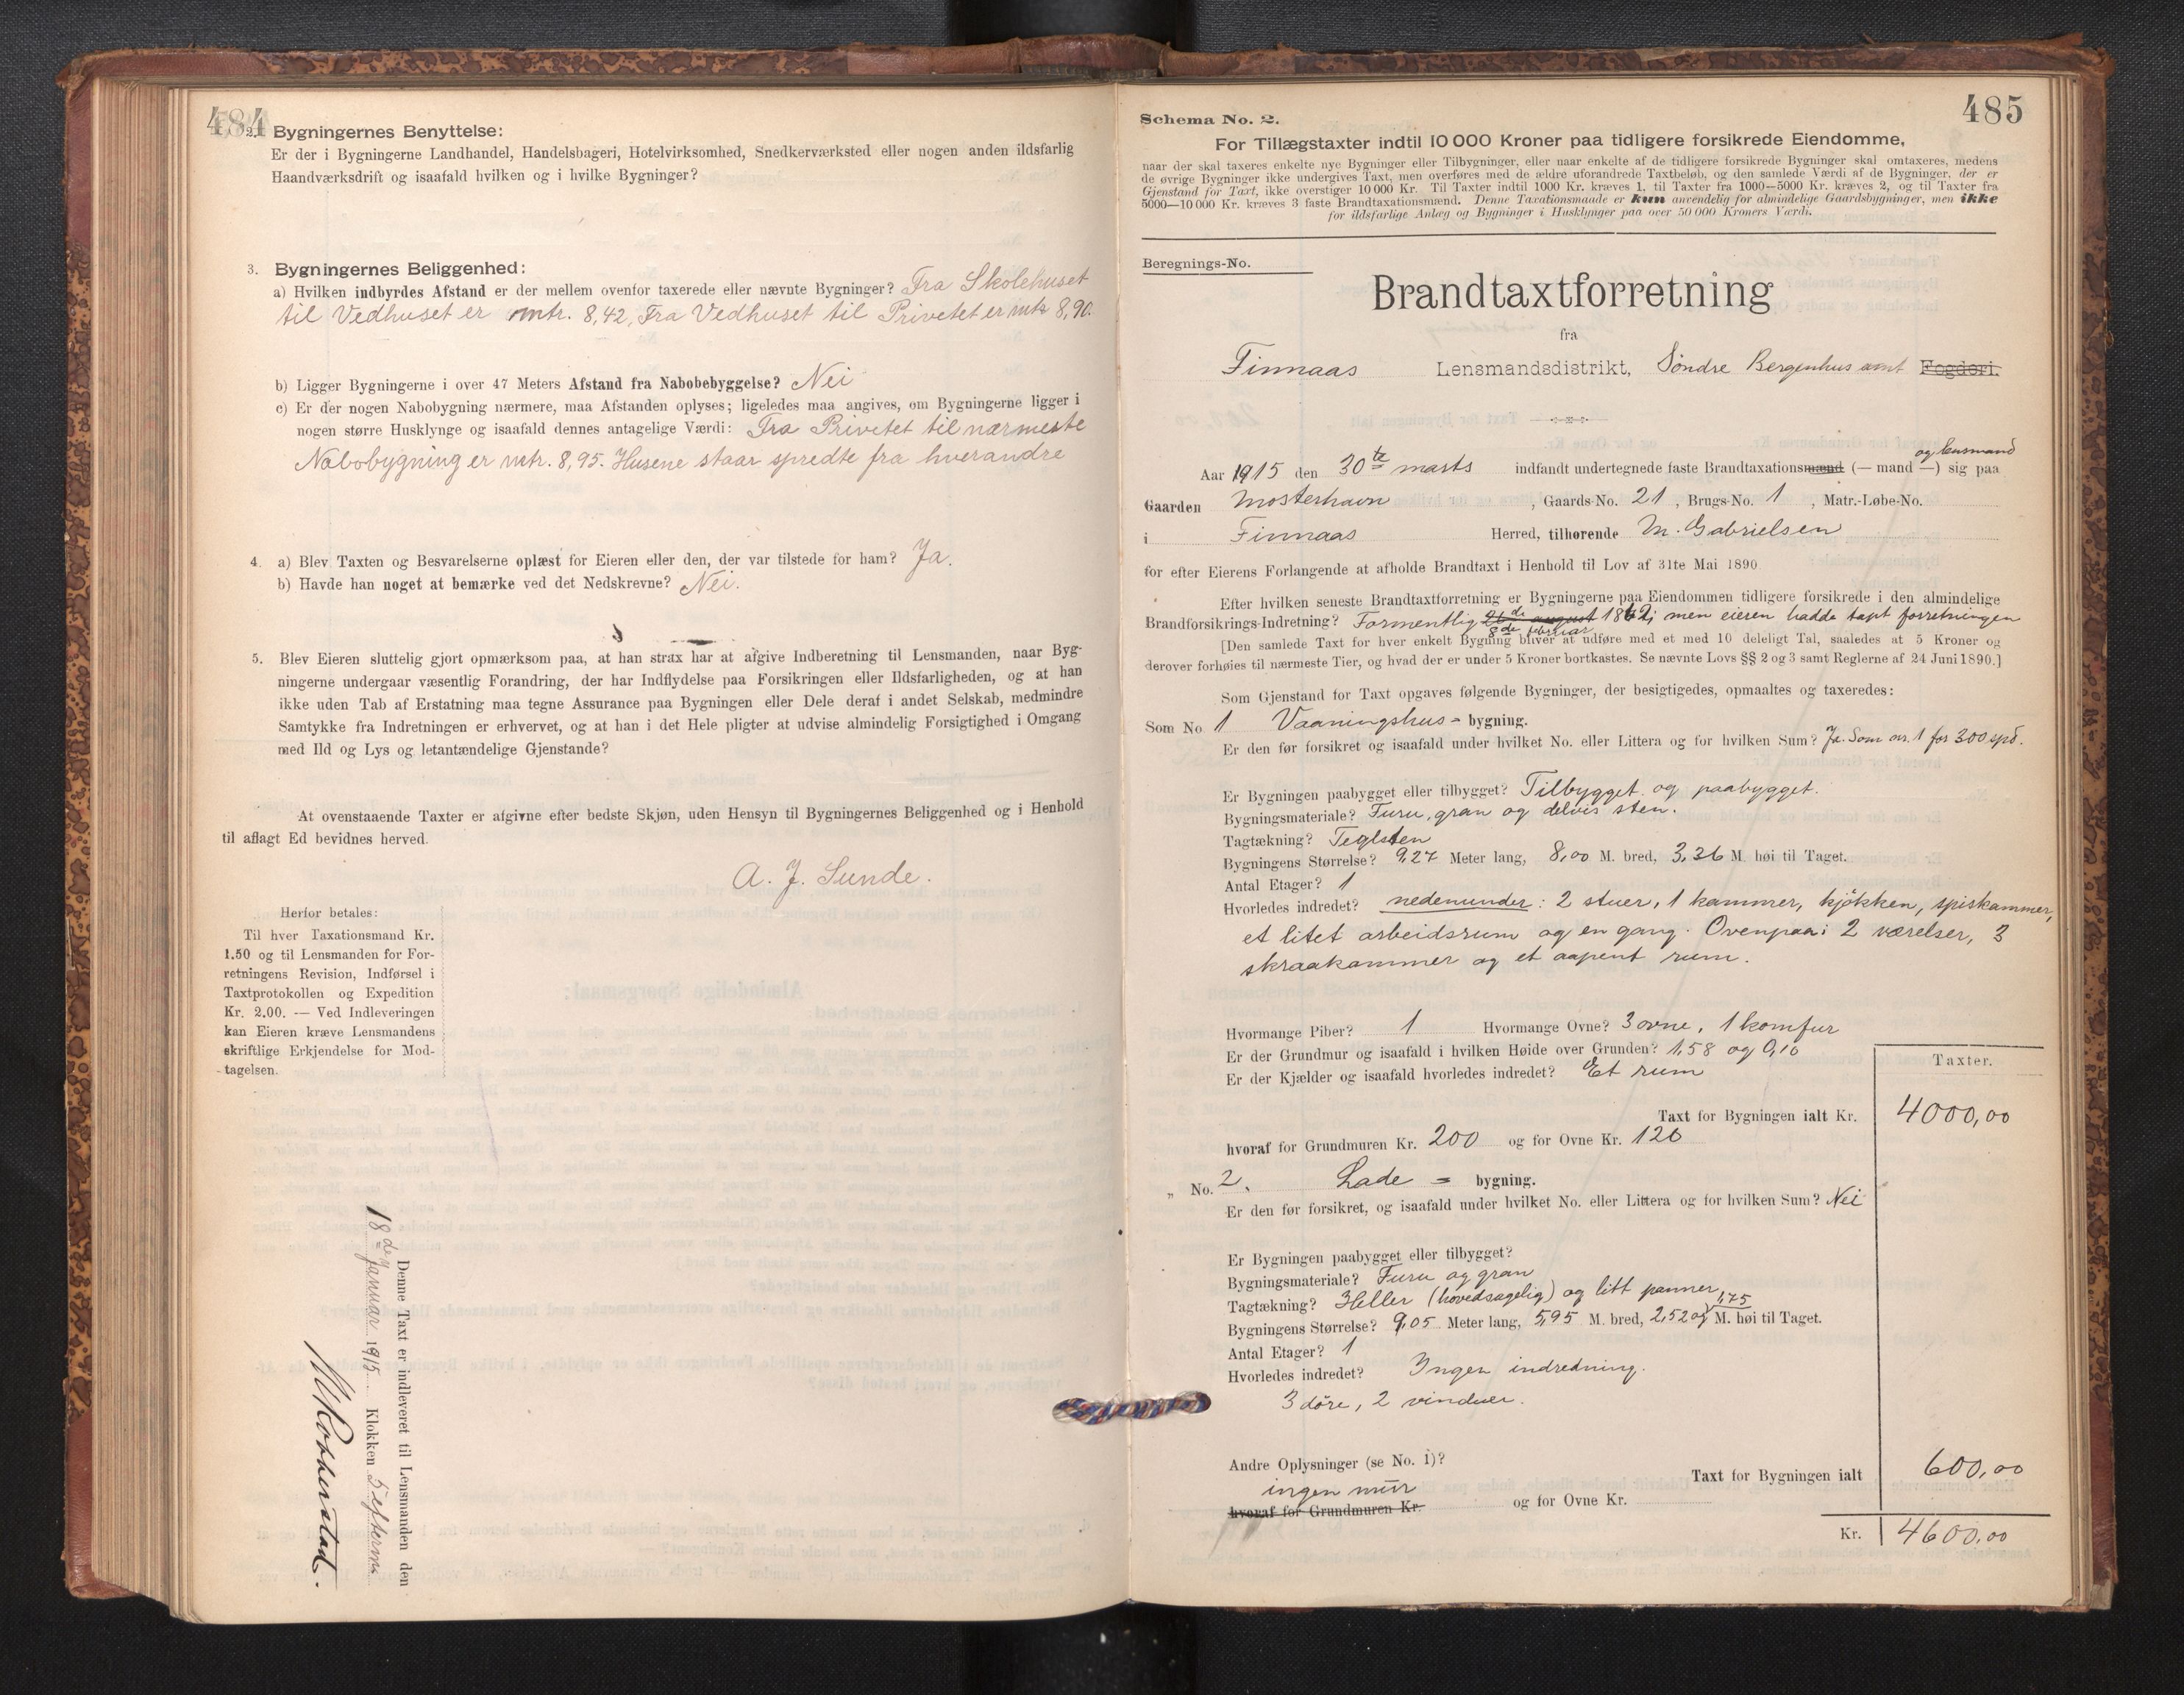 484
2. Bygningernes Benyttelse:
Er der i Bygningerne Landhandel, Handelsbageri, Hotelvirksomhed, Snedkerværksted eller nogen anden ildsfarlig
Haandværksdrift og isaafald hvilken og i hvilke Bygninger?
3. Bygningernes Beliggenhed:
a) Hvilken indbyrdes Afstand er der mellem ovenfor taxerede eller nævnte Bygninger? Fra Skolehuset
til Vedhuset er mtr. 8,42, Fra Vedhuset til Privetet er mtr 8,90.
b) Ligger Bygningerne i over 47 Meters Afstand fra Nabobebyggelse? Nei
c) Er der nogen Nabobygning nærmere, maa Afstanden oplyses; ligeledes maa angives, om Bygningerne ligger i
nogen større Husklynge og isaafald dennes antagelige Værdi: Fra Privetet til nærmeste
Nabobygning er mtr. 8,95. Husene staar spredte fra hverandre
4. a) Blev Taxten og Besvarelserne oplæst for Eieren eller den, der var tilstede for ham? Ja.
b) Havde han noget at bemærke ved det Nedskrevne? Nei.
5. Blev Eieren sluttelig gjort opmærksom paa, at han strax har at afgive Indberetning til Lensmanden, naar Byg-
ningerne undergaar væsentlig Forandring, der har Indflydelse paa Forsikringen eller Ildsfarligheden, og at han
ikke uden Tab af Erstatning maa tegne Assurance paa Bygningen eller Dele deraf i andet Selskab, medmindre
Samtykke fra Indretningen er erhvervet, og at han i det Hele pligter at udvise almindelig Forsigtighed i Omgang
med Ild og Lys og letantændelige Gjenstande?
At ovenstaaende Taxter er afgivne efter bedste Skjøn, uden Hensyn til Bygningernes Beliggenhed og i Henhold
til aflagt Ed bevidnes herved.
A. J. Sunde.
Herfor betales:
Til hver Taxationsmand Kr.
1.50 og til Lensmanden for For-
retningens Revision, Indførsel i
Taxtprotokollen og Expedition
Kr. 2.00. — Ved Indleveringen
kan Eieren kræve Lensmandens
skriftlige Erkjendelse for Mod-
tagelsen.
Denne Taxt er indleveret til Lensmanden den
18de Januar 1915 Klokken 5 efterm
485
Schema No. 2.
For Tillægstaxter indtil 10 000 Kroner paa tidligere forsikrede Eiendomme,
naar der skal taxeres enkelte nye Bygninger eller Tilbygninger, eller naar enkelte af de tidligere forsikrede Bygninger skal omtaxeres, medens
de øvrige Bygninger ikke undergives Taxt, men overføres med de ældre uforandrede Taxtbeløb, og den samlede Værdi af de Bygninger, der er
Gjenstand for Taxt, ikke overstiger 10 000 Kr. Til Taxter indtil 1000 Kr. kræves 1, til Taxter fra 1000—5000 Kr. kræves 2, og til Taxter fra
5000—10 000 Kr. kræves 3 faste Brandtaxationsmænd. Denne Taxationsmaade er kun anvendelig for almindelige Gaardsbygninger, men ikke
for ildsfarlige Anlæg og Bygninger i Husklynger paa over 50 000 Kroners Værdi.
Beregnings-No.
Brandtaxtforretning
fra
Finnaas Lensmandsdistrikt, Søndre Bergenhus amt Fogderi.
og lensmand
Aar 1915 den 30te marts indfandt undertegnede faste Brandtaxationsmænd (— mand —) sig paa
Gaarden Mosterhavn, Gaards-No. 21, Brugs-No. 1, Matr.-Løbe-No.
i Finnaas Herred, tilhørende M. Gabrielsen
for efter Eierens Forlangende at afholde Brandtaxt i Henhold til Lov af 31te Mai 1890.
Efter hvilken seneste Brandtaxtforretning er Bygningerne paa Eiendommen tidligere forsikrede i den almindelige
Brandforsikrings-Indretning? Formentlig august 1862; men eieren hadde tapt forretningen
8de februar
[Den samlede Taxt for hver enkelt Bygning bliver at udføre med et med 10 deleligt Tal, saaledes at 5 Kroner og
derover forhøies til nærmeste Tier, og hvad der er under 5 Kroner bortkastes. Se nævnte Lovs §§ 2 og 3 samt Reglerne af 24 Juni 1890.]
Som Gjenstand for Taxt opgaves følgende Bygninger, der besigtigedes, opmaaltes og taxeredes:
Som No 1 Vaaningshus - bygning.
Er den før forsikret og isaafald under hvilket No. eller Littera og for hvilken Sum? Ja. Som nr. 1 for 300 spd.
Er Bygningen paabygget eller tilbygget? Tilbygget og paabygget.
Bygningsmateriale? Furu, gran og delvis sten.
Tagtækning? Teglsten
Bygningens Størrelse? 9,27 Meter lang, 8,00 M. bred, 3,36 M. høi til Taget.
Antal Etager? 1
Hvorledes indredet? nedenunder: 2 stuer, 1 kammer, kjökken, spiskammer,
et litet arbeidsrum og en gang. Ovenpaa: 2 værelser, 3
skraakammer og et aapent rum.
Hvormange Piber? 1 Hvormange Ovne? 3 ovne, 1 komfur
Er der Grundmur og isaafald i hvilken Høide over Grunden? 1,58 og 0,10
Er der Kjælder og isaafald hvorledes indredet? Et rum
Taxter.
Taxt for Bygningen ialt Kr. 4000,00
hvoraf for Grundmuren Kr. 200 og for Ovne Kr. 120
„ No. 2. Lade - bygning.
Er den før forsikret, og isaafald under hvilket No. eller Littera og for hvilken Sum? Nei
Er Bygningen paabygget eller tilbygget?
Bygningsmateriale? Furu og gran
Tagtækning? Heller (hovedsagelig) og litt panner
Bygningens Størrelse? 9,05 Meter lang, 5,95 M. bred, 2,52 og 1,75 M. høi til Taget.
Antal Etager? 1
Hvorledes indredet? Ingen indredning.
3 döre, 2 vinduer.
Andre Oplysninger (se No. 1)?
Taxt for Bygningen ialt 600,00
ingen mur
hvoraf for Grundmuren Kr. og for Ovne Kr.
Kr. 4600,00